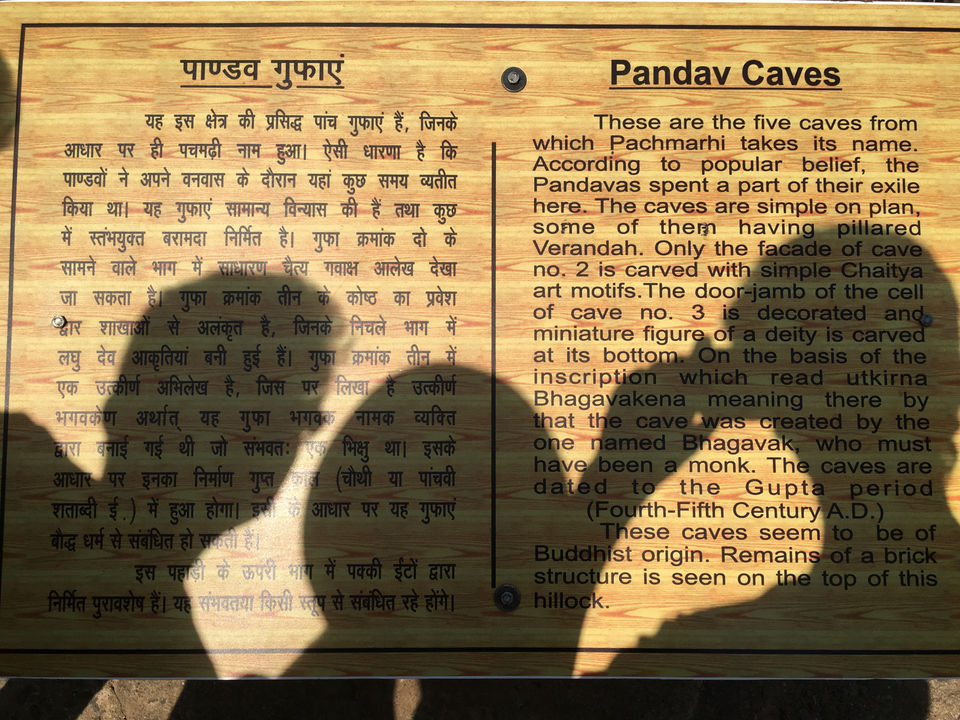 पाण्डव गुफाएं
यह इस क्षेत्र की प्रसिद्ध पांच गुफाएं हैं, जिनके
आधार पर ही पचमढ़ी नाम हुआ। ऐसी धारणा है कि
पाण्डवों ने अपने वनवास के दौरान यहां कुछ समय व्यतीत
किया था। यह गुफाएं सामान्य विन्यास की हैं तथा कुछ
में स्तंभयुक्त बरामदा निर्मित है। गुफा क्रमांक दो के
सामने वाले भाग में साधारण चैत्य गवाक्ष आलेख देखा
जा सकता है। गुफा क्रमांक तीन के कोष्ठ का प्रवेश
द्वार शाखाओं से अलंकृत है, जिनके निचले भाग में
लघु देव आकृतियां बनी हुई हैं। गुफा क्रमांक तीन में
एक उत्कीर्ण अभिलेख है, जिस पर लिखा है उत्कीर्ण
भगवकेण अर्थात् यह गुफा भगवक नामक व्यक्ति
द्वारा बनाई गई थी जो संभवतः एक भिक्षु था। इसके
आधार पर इनका निर्माण गुप्त काल (चौथी या पांचवी
शताब्दी ई.) में हुआ होगा। इसी के आधार पर यह गुफाएं
बौद्ध धर्म से संबंधित हो सकती हैं।
इस पहाड़ी के ऊपरी भाग में पक्की ईंटों द्वारा
निर्मित पुरावशेष हैं। यह संभवतया किसी स्तूप से संबंधित रहे होंगे।
Pandav Caves
These are the five caves from
which Pachmarhi takes its name.
According to popular belief, the
Pandavas spent a part of their exile
here. The caves are simple on plan,
some of them having pillared
Verandah. Only the facade of cave
no. 2 is carved with simple Chaitya
art motifs.The door-jamb of the cell
of cave no. 3 is decorated and
miniature figure of a deity is carved
at its bottom. On the basis of the
inscription which read utkirna
Bhagavakena meaning there by
that the cave was created by the
one named Bhagavak, who must
have been a monk. The caves are
dated to the Gupta period
(Fourth-Fifth Century A.D.)
These caves seem to be of
Buddhist origin. Remains of a brick
structure is seen on the top of this
hillock.